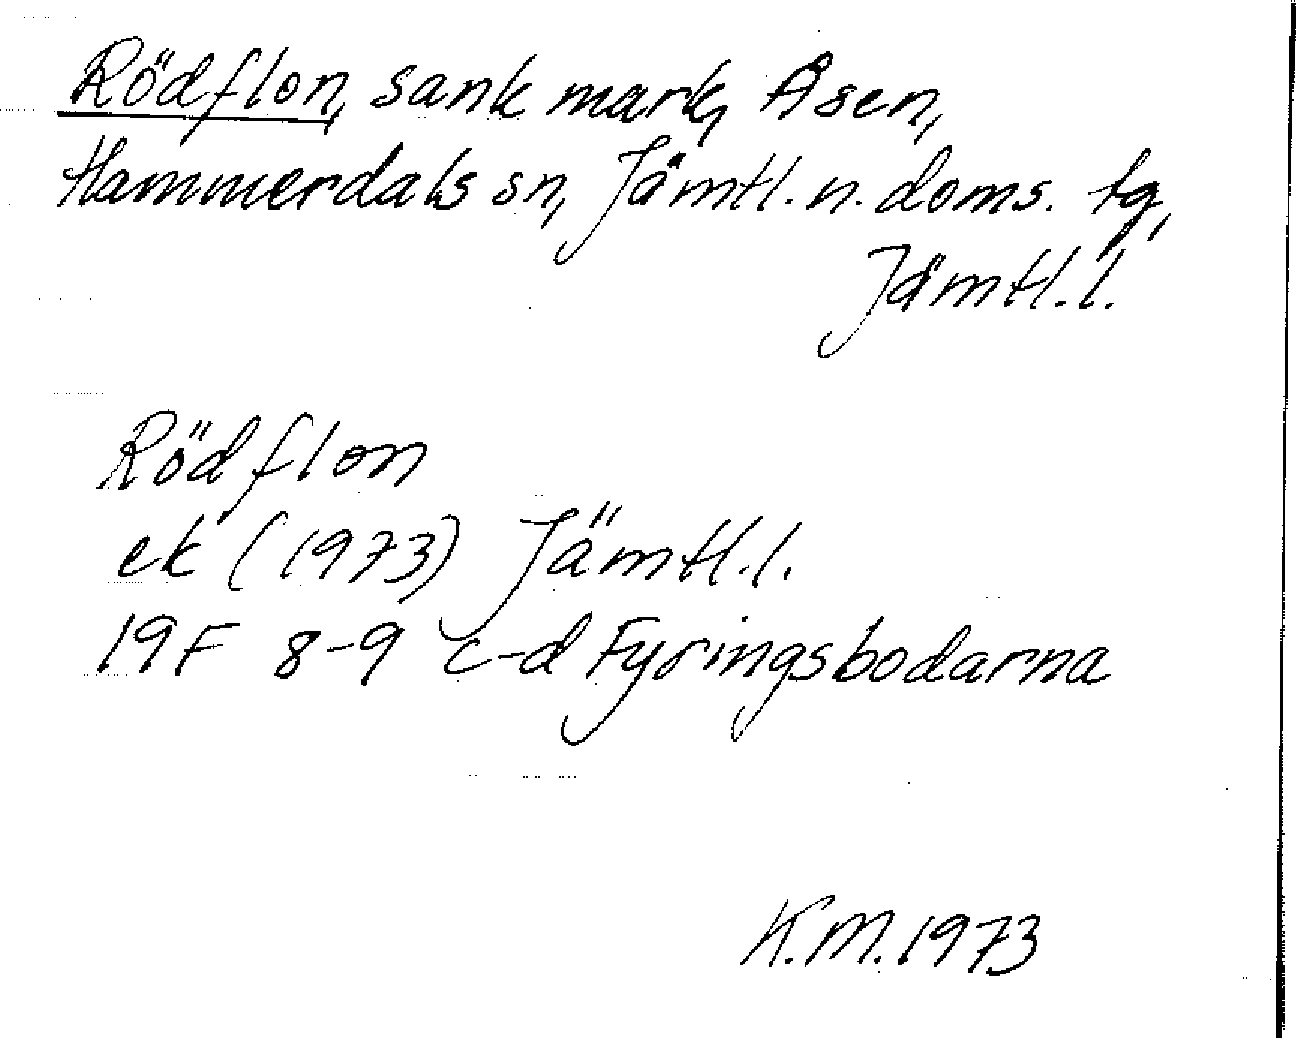 Rödflon, sank mark, Åsen,
Hammerdals sn, Jämtl. n. doms. tg,
Jämtl. l.
Rödflon
ek (1973) Jämtl. l.
19F 8-9 c-d Fyringsbodarna
K.M. 1973